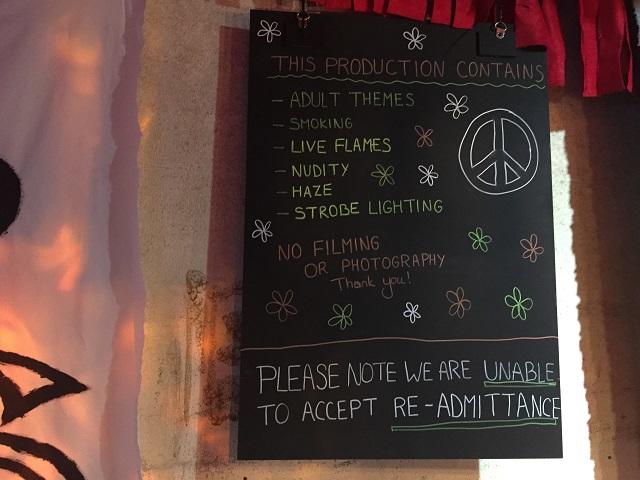 THIS PRODUCTION CONTAINS
- ADULT THEMES
- SMOKING
- LIVE FLAMES
- NUDITY
- HAZE
- STROBE LIGHTING
NO FILMING
OR PHOTOGRAPHY
Thank you!
PLEASE NOTE WE ARE UNABLE
TO ACCEPT RE-ADMITTANCE